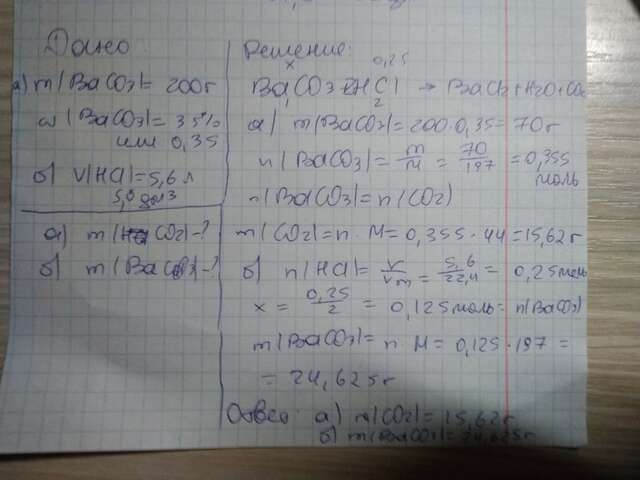 Дано
а) m(BaCO3)= 200г
ω(BaCO3)= 35%
или 0,35
б) V(HCl)=5,6 л
5,6 дм3
а) m(CO2)-?
б) m(BaCO3)-?
Решение:
x 0,25
BaCO3+2HCl → BaCl2+H2O+CO2
1 2
а) m(BaCO3)=200·0,35=70г
n(BaCO3)= m/M = 70/197 =0,355
моль
n(BaCO3)=n(CO2)
m(CO2)=n·M=0,355·44=15,62г
б) n(HCl)= V/Vm = 5,6/22,4 = 0,25моль
x = 0,25/2 = 0,125моль= n(BaCO3)
m(BaCO3)= n·M=0,125·197 =
= 24,625г
Ответ: а) m(CO2)=15,62г
б) m(BaCO3)=24,625г